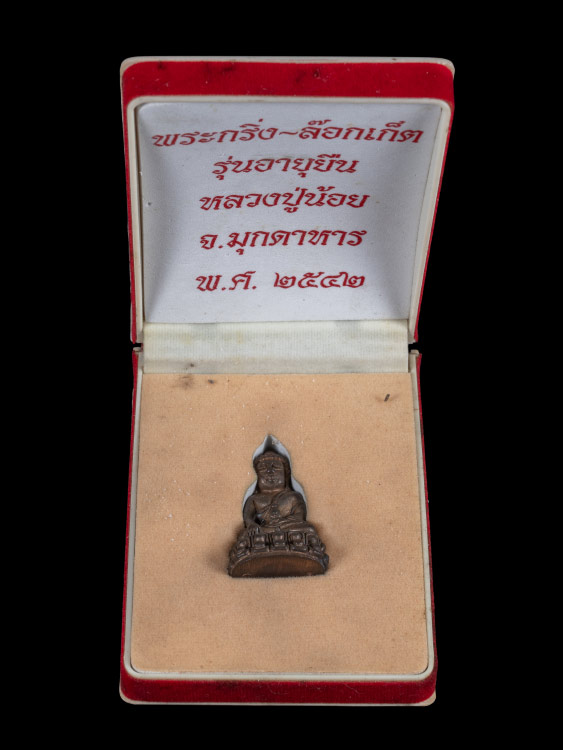 พระกริ่ง~ล๊อกเก็ต
รุ่นอายุยืน
หลวงปู่น้อย
จ.มุกดาหาร
พ.ศ. ๒๕๔๒